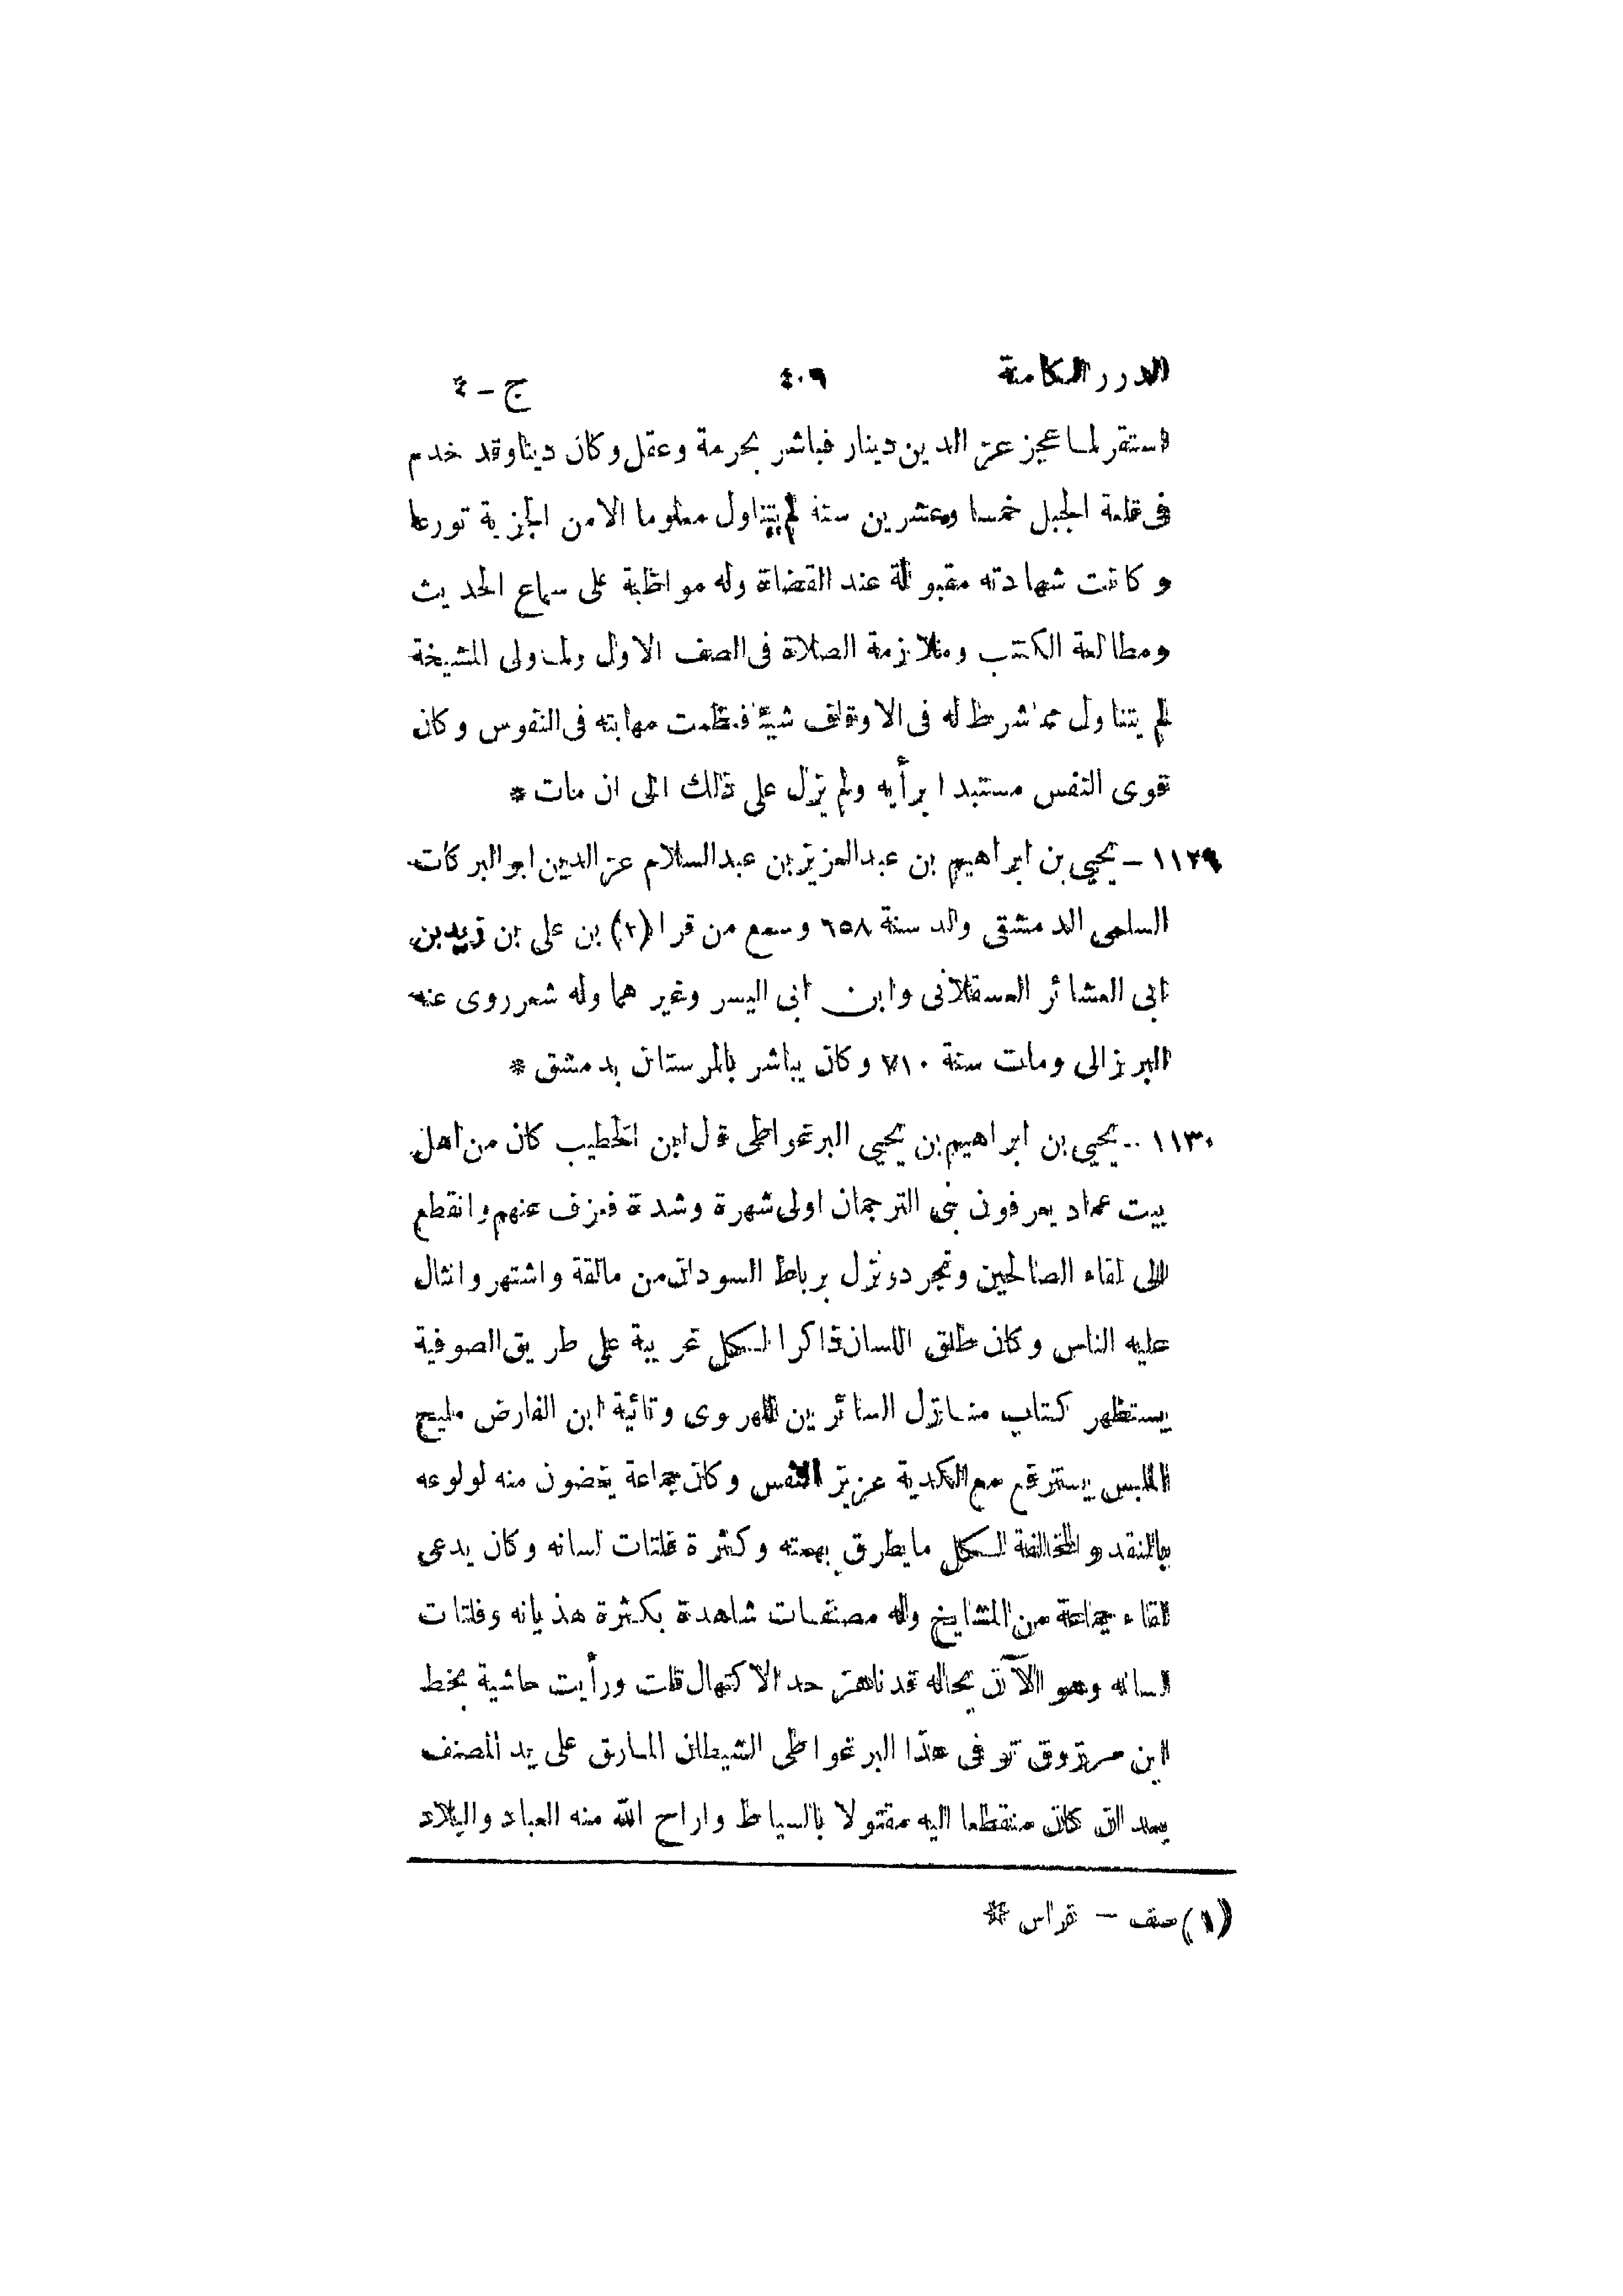 الدرر الكامنة ٤٠٩ ج - ٤
استقر لما عجز عز الدين دينار فباشر بحرمة وعقل وكان دينا وقد خدم
فى قلعة الجبل خمسا وعشرين سنة لم يتناول معلوما الا من الجزية تورعا
وكانت شهادته مقبولة عند القضاة وله مواظبة على سماع الحديث
ومطالعة الكتب وملازمة الصلاة فى الصف الاول ولما ولى المشيخة
لم يتناول مما شرط له فى الاوقاف شيئا فعظمت مهابته فى النفوس وكان
قوى النفس مستبدا برأيه ولم يزل على ذلك الى ان مات *
١١٢٩ - يحيى بن ابراهيم بن عبد العزيز بن عبد السلام عز الدين ابو البركات
السلمى الدمشقى ولد سنة ٦٥٨ وسمع من قرا (١) بن على بن زيد بن
ابى العشائر العسقلانى وابن ابى اليسر وغيرهما وله شعر روى عنه
البرزالى ومات سنة ٧١٠ وكان يباشر بالمرستان بدمشق *
١١٣٠ - يحيى بن ابراهيم بن يحيى البرغواطى قال ابن الخطيب كان من اهل
بيت عماد يعرفون ببنى الترجمان اولى شهرة وشدة فعزف عنهم وانقطع
الى لقاء الصالحين وتجرد ونزل برباط السودان من مالقة واشتهر وانثال
عليه الناس وكان طلق اللسان ذاكرا لكل غريبة على طريق الصوفية
يستظهر كتاب منازل السائرين للهروى وتائية ابن الفارض مليح
الملبس يسترزق مع الكدية عزيز النفس وكان جماعة يغضون منه لولوعه
بالنقد والمخالفة لكل ما يطرق بهمته وكثرة فلتات لسانه وكان يدعى
لقاء جماعة من المشايخ وله مصنفات شاهدة بكثرة هذيانه وفلتات
لسانه وهو الآن بحاله قد ناهز حد الاكتهال قلت ورأيت حاشية بخط
ابن مرزوق توفى هذا البرغواطى الشيطان المارق على يد المصنف
بعد ان كان منقطعا اليه مقتولا بالسياط واراح الله منه العباد والبلاد
(١) صف - قراس *